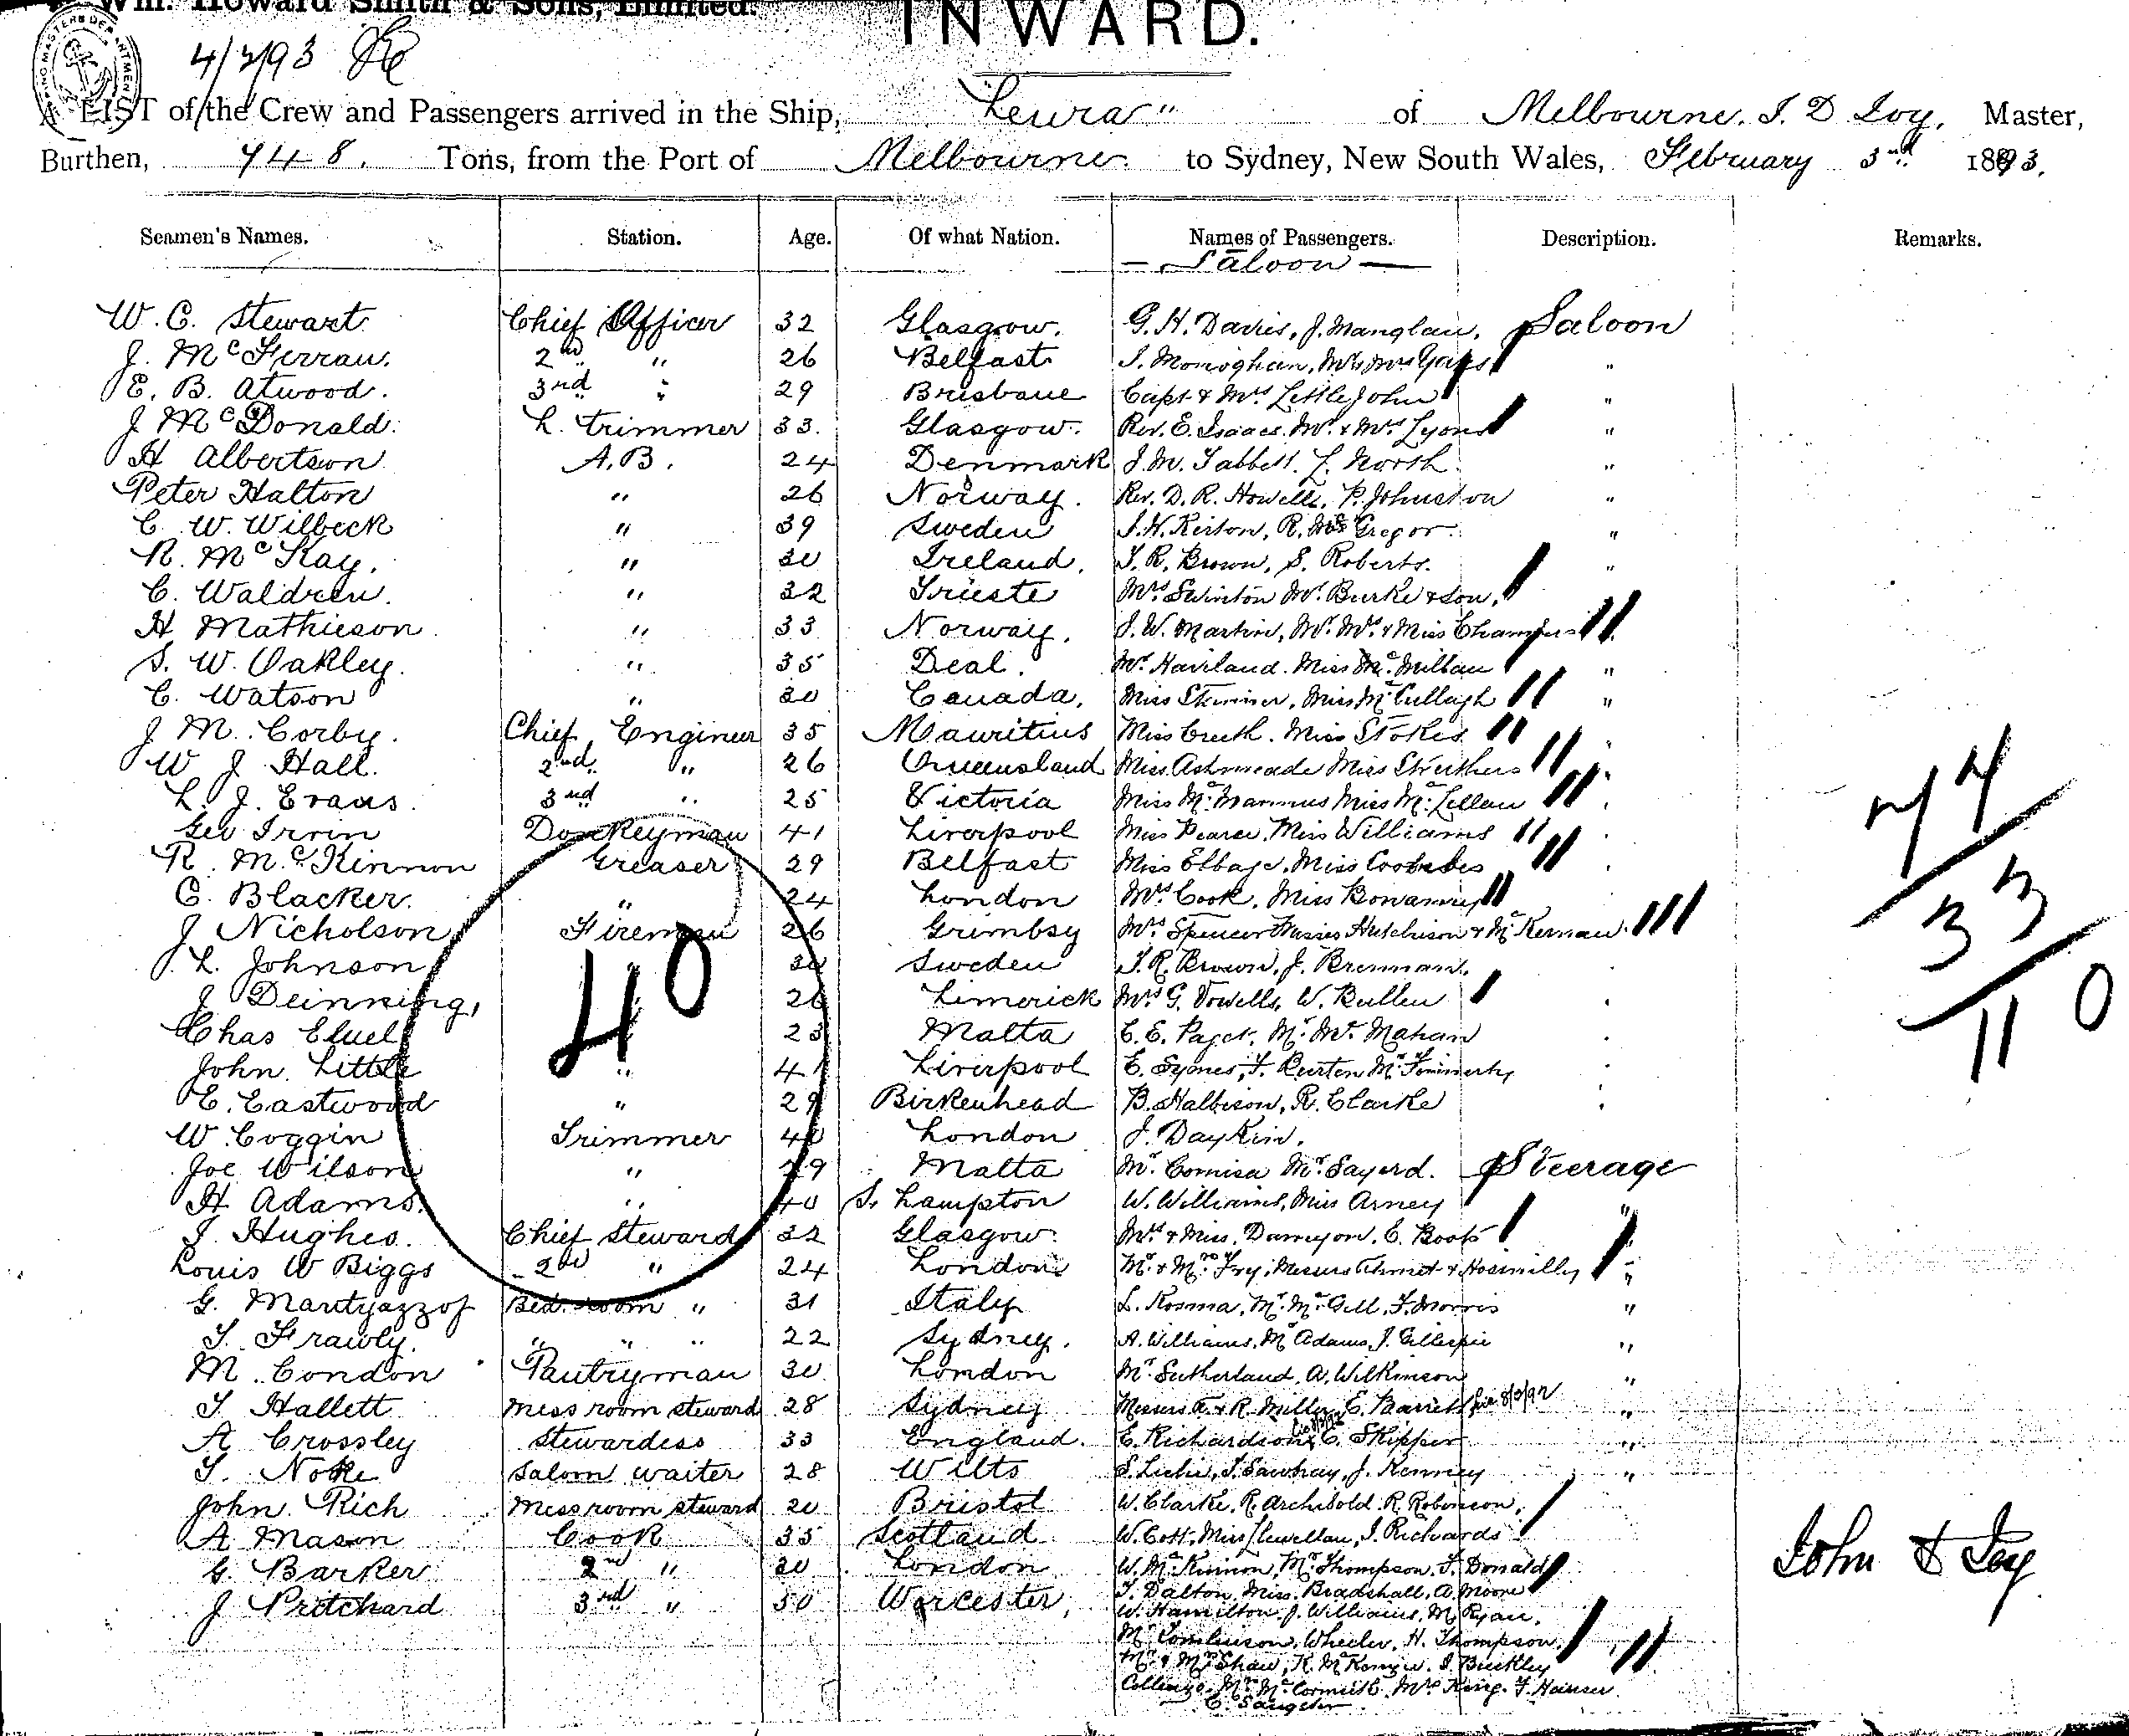 Wm. Howard Smith & Sons, Limited.
INWARD.
4/2/93
A LIST of the Crew and Passengers arrived in the Ship, Leura" of Melbourne, J. D Loy, Master,
Burthen, 948. Tons, from the Port of Melbourne to Sydney, New South Wales, February 3rd 1893.
Seamen's Names. Station. Age. Of what Nation. Names of Passengers. Description. Remarks.
— Saloon —
W. C. Stewart. Chief Officer 32 Glasgow. G. H. Davies, J. Manglau, Saloon
J. McFerrau. 2nd " 26 Belfast J. Monoghan, Mr & Mrs " 
E. B. Atwood. 3rd " 29 Brisbane Capt & Mrs LittleJohn "
J McDonald. L. trimmer 33. Glasgow. Rev. E. Isaacs. Mr. & Mrs Lyons "
H Albertson A.B. 24 Denmark J. M. Tabbett. L. North "
Peter Halton " 26 Norway. Rev. D. R. Howells, P. Johnston "
C. W. Wilbeck " 39 Sweden J. H. Kerton, R. McGregor. "
R. McKay. " 30 Ireland. J. R. Brown, S. Roberts. "
C. Waldren. " 32 Trieste Mrs. Swinton Mr. Burke & Son,
H Mathieson " 33 Norway. J. W. Martin, Mr. Mrs. & Miss
S. W. Oakley. " 35 Deal. Mr. Haviland. Miss McMillan "
C. Watson " 30 Canada, Miss Skinner, Miss McCullagh "
J M. Corby. Chief Engineer 35 Mauritius Miss Miss Stokes
W J Hall. 2nd " 26 Queensland Miss Ashmeade Miss Struthers
L. J. Evans. 3rd " 25 Victoria Miss McManmus Miss McLellan
Geo Irvin Donkeyman 41 Liverpool Miss Pearce, Miss Williams
R. McKinnon Greaser 29 Belfast Miss Miss
C. Blacker. " 24 London Mrs Cook, Miss
J Nicholson Fireman 26 Grimbsy Mrs. Spencer Misses Hutchison & McKernan.
L. Johnson " 30 Sweden J. R. Brown, J. Brennan.
J Deinning, 26 Limerick Mrs G. Vowells, W. Bullen
Chas Eluel 23 Malta C. E. Paget, Mr. McMahan
John. Little " 41 Liverpool E. Symes, F. Burton Mr. Finnerty
E. Eastwood " 29 Birkenhead B. Halbison, R. Clarke
W. Coggin Trimmer 40 London J. Daykin.
Joe Wilson " 29 Malta Mr. Cornisa Mr. Sayerd. Steerage
H Adams. " 40 S. hampton W. Williams, Miss Arney "
J. Hughes. Chief Steward 32 Glasgow. Mrs & Miss. C. Boots
Louis W Biggs 2nd " 24 London Mr. & Mrs. Fry, Messrs "
G. Mantyazzof Bed. room " 31 Italy L. Rosma, Mr. McGill, F. Morris "
T. Frawly. " " " 22 Sydney. A. Williams, Mr Adams, J. Gillespie "
M. Condon Pantryman 30 London Mr. Sutherland, A. Wilkinson "
T. Hallett Mess room steward 28 Sydney Messrs F. & R. Miller, E. Barrett "
A Crossley Stewardess 33 England. E. Richardson, C. Skipper "
T. Noke Saloon waiter 28 Wilts S. Lickie, J. Sawhay, J. Kenney "
John Rich Mess room steward 20 Bristol W. Clarke, R. Archibold. R. Robinson,
A Mason Cook 35 Scotland W. Cott, Miss Llewellan, J. Richards
G. Barker 2nd " 30 London W. McKinnon, Mr Thompson, F. Donald
J Pritchard 3rd " 50 Worcester, T. Dalton, Miss Bradshall, A. Moore
W. Hamilton. J. Williams, M. Ryan.
Mr Tomlinson, Wheeler, H. Thompson,
Mr. & Mrs Shaw, K. McKenzie. J. Buckley
Collings. Mr. McCormick. Mrs King. F. Hansen.
C. Sangster
40
74
33
110
John D Loy